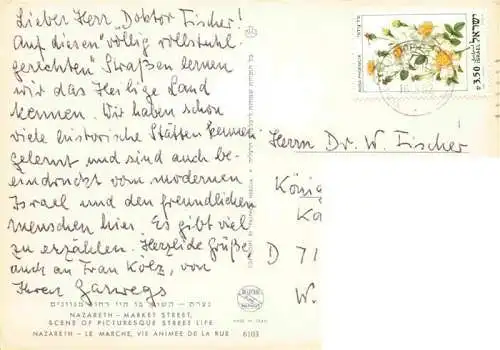 Lieber Herr Doktor Fischer!
Auf diesen "völlig rollstuhl-
gerechten" Straßen lernen
wir das Heilige Land
kennen. Wir haben schon
viele historische Stätten kennen
gelernt und sind auch be-
eindruckt vom modernen
Israel und den freundlichen
Menschen hier. Es gibt viel
zu erzählen. Herzliche Grüße,
auch an Frau Kölz, von
Ihren
נצרת – השוק בו חיי רחוב מגוונים
NAZARETH – MARKET STREET,
SCENE OF PICTURESQUE STREET LIFE
NAZARETH – LE MARCHE, VIE ANIMEE DE LA RUE 6103
MADE IN ISRAEL
ישראל
ISRAEL
3.50
Herrn Dr. W. Fischer
König
Ka
D 71
W.